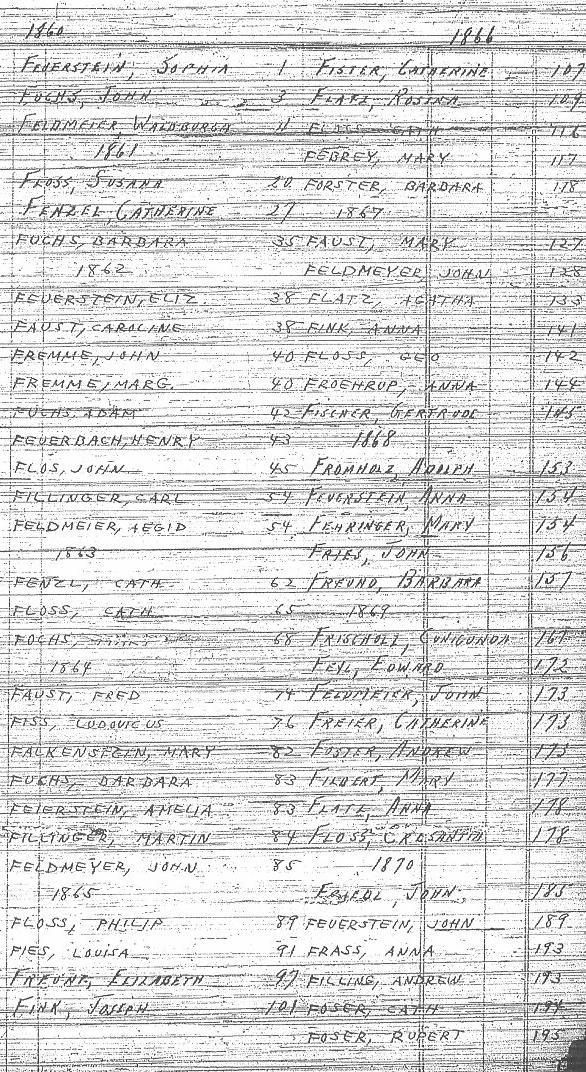 1860
FEUERSTEIN, SOPHIA 1
FUCHS, JOHN 3
FELDMEIER, WALDBURGA 11
1861
FLOSS, SUSANA 20
FENZEL, CATHERINE 27
FUCHS, BARBARA 35
1862
FEUERSTEIN, ELIZ. 38
FAUST, CAROLINE 38
FREMME, JOHN 40
FREMME, MARG. 40
FUCHS, ADAM 42
FEUERBACH, HENRY 43
FLOS, JOHN 45
FILLINGER, CARL 54
FELDMEIER, AEGID 54
1863
FENZL, CATH 62
FLOSS, CATH 65
FOCHS, 68
1864
FAUST, FRED 74
FISS, LUDOVICUS 76
FALKENSEGEN, MARY 82
FUCHS, BARBARA 83
FEIERSTEIN, AMELIA 83
FILLINGER, MARTIN 84
FELDMEYER, JOHN 85
1865
FLOSS, PHILIP 89
FIES, LOUISA 91
FREUNT, ELIZABETH 97
FINK, JOSEPH 101
1866
FISTER, CATHERINE 107
FLATZ, ROSINA 109
FLOSS, CATH 116
FEBREY, MARY 117
FORSTER, BARBARA 118
1867
FAUST, MARY 127
FELDMEYER, JOHN 128
FLATZ, AGATHA 133
FINK, ANNA 141
FLOSS, GEO 142
FROEHRUP, ANNA 144
FISCHER, GERTRUDE 145
1868
FROMHOLZ, ADOLPH 153
FEUERSTEIN, ANNA 154
FEHRINGER, MARY 154
FRIES, JOHN 156
FREUND, BARBARA 157
1869
FRISCHOLZ, CUNIGUNDA 167
FEYL, EDWARD 172
FELDMEIER, JOHN 173
FREIER, CATHERINE 173
FOSTER, ANDREW 173
FILBERT, MARY 177
FLATZ, ANNA 178
FLOSS, CRESANTIA 178
1870
JOHN, 185
FEUERSTEIN, JOHN 189
FRASS, ANNA 193
FILLING, ANDREW 193
FOSER, CATH 194
FOSER, RUPERT 195